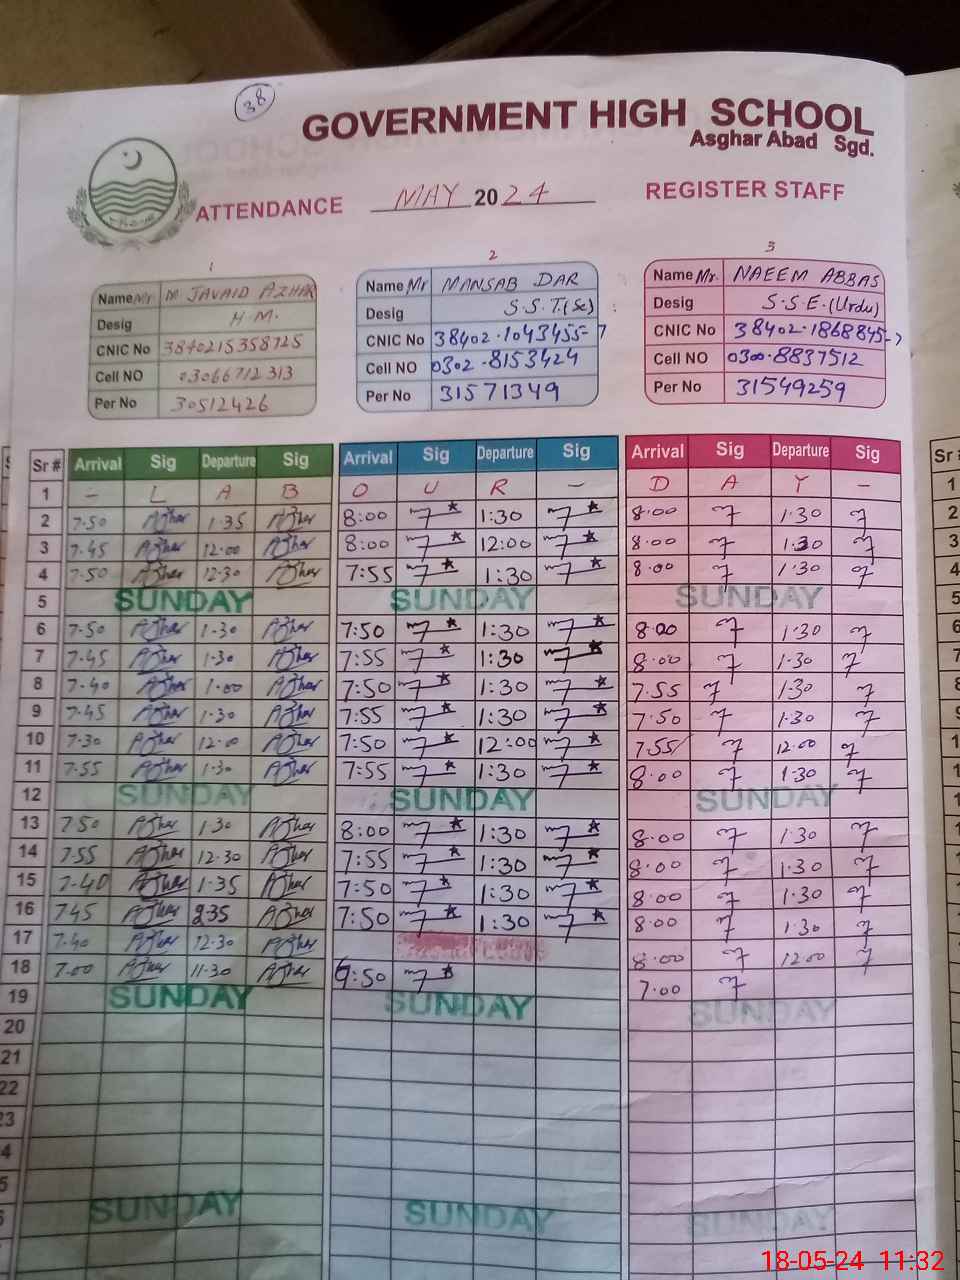 38
GOVERNMENT HIGH SCHOOL
Asghar Abad Sgd.
ATTENDANCE MAY 2024 REGISTER STAFF
1 2 3
Name Mr M JAVAID AZHAR
Desig H.M.
CNIC No 3840215358725
Cell NO 03066712313
Per No 30512426
Name Mr MANSAB DAR
Desig S.S.T.(Sc)
CNIC No 38402-1043455-7
Cell NO 0302-8153424
Per No 31571349
Name Mr. NAEEM ABBAS
Desig S.S.E.(Urdu)
CNIC No 38402-1868845-7
Cell NO 0300-8837512
Per No 31549259
Sr # Arrival Sig Departure Sig Arrival Sig Departure Sig Arrival Sig Departure Sig Sr #
1 – L A B O U R – D A Y – 1
2 7.50 Azhar 1.35 Azhar 8:00 1:30 8.00 1.30 2
3 7.45 Azhar 12.00 Azhar 8:00 12:00 8.00 1.30 3
4 7.50 Azhar 12.30 Azhar 7:55 1:30 8.00 1.30 4
5 SUNDAY SUNDAY SUNDAY 5
6 7.50 Azhar 1.30 Azhar 7:50 1:30 8.00 1.30 6
7 7.45 Azhar 1.30 Azhar 7:55 1:30 8.00 1.30 7
8 7.40 Azhar 1.00 Azhar 7:50 1:30 7.55 1.30 8
9 7.45 Azhar 1.30 Azhar 7:55 1:30 7.50 1.30 9
10 7.30 Azhar 12.00 Azhar 7:50 12:00 7.55 12.00 1
11 7.55 Azhar 1.30 Azhar 7:55 1:30 8.00 1.30 1
12 SUNDAY SUNDAY SUNDAY 1
13 7.50 Azhar 1.30 Azhar 8:00 1:30 8.00 1.30
14 7.55 Azhar 12.30 Azhar 7:55 1:30 8.00 1.30
15 7.40 Azhar 1.35 Azhar 7:50 1:30 8.00 1.30
16 7.45 Azhar 2.35 Azhar 7:50 1:30 8.00 1.30
17 7.40 Azhar 12.30 Azhar 8.00 12.00
18 7.00 Azhar 11.30 Azhar 6:50 7.00
19 SUNDAY SUNDAY SUNDAY
20
21
22
23
4
5
SUNDAY SUNDAY SUNDAY
18-05-24 11:32